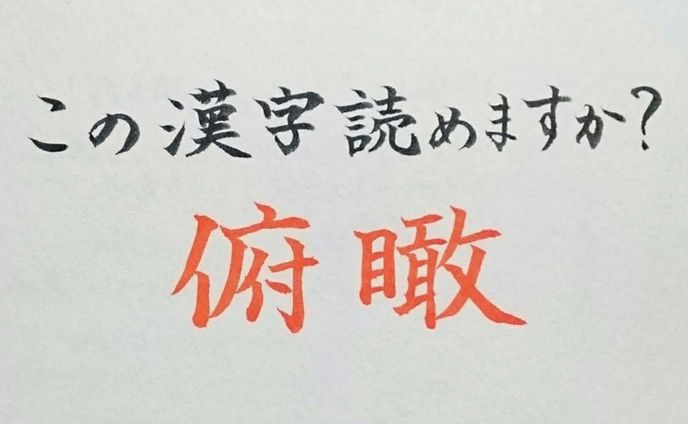 この漢字読めますか?
俯瞰